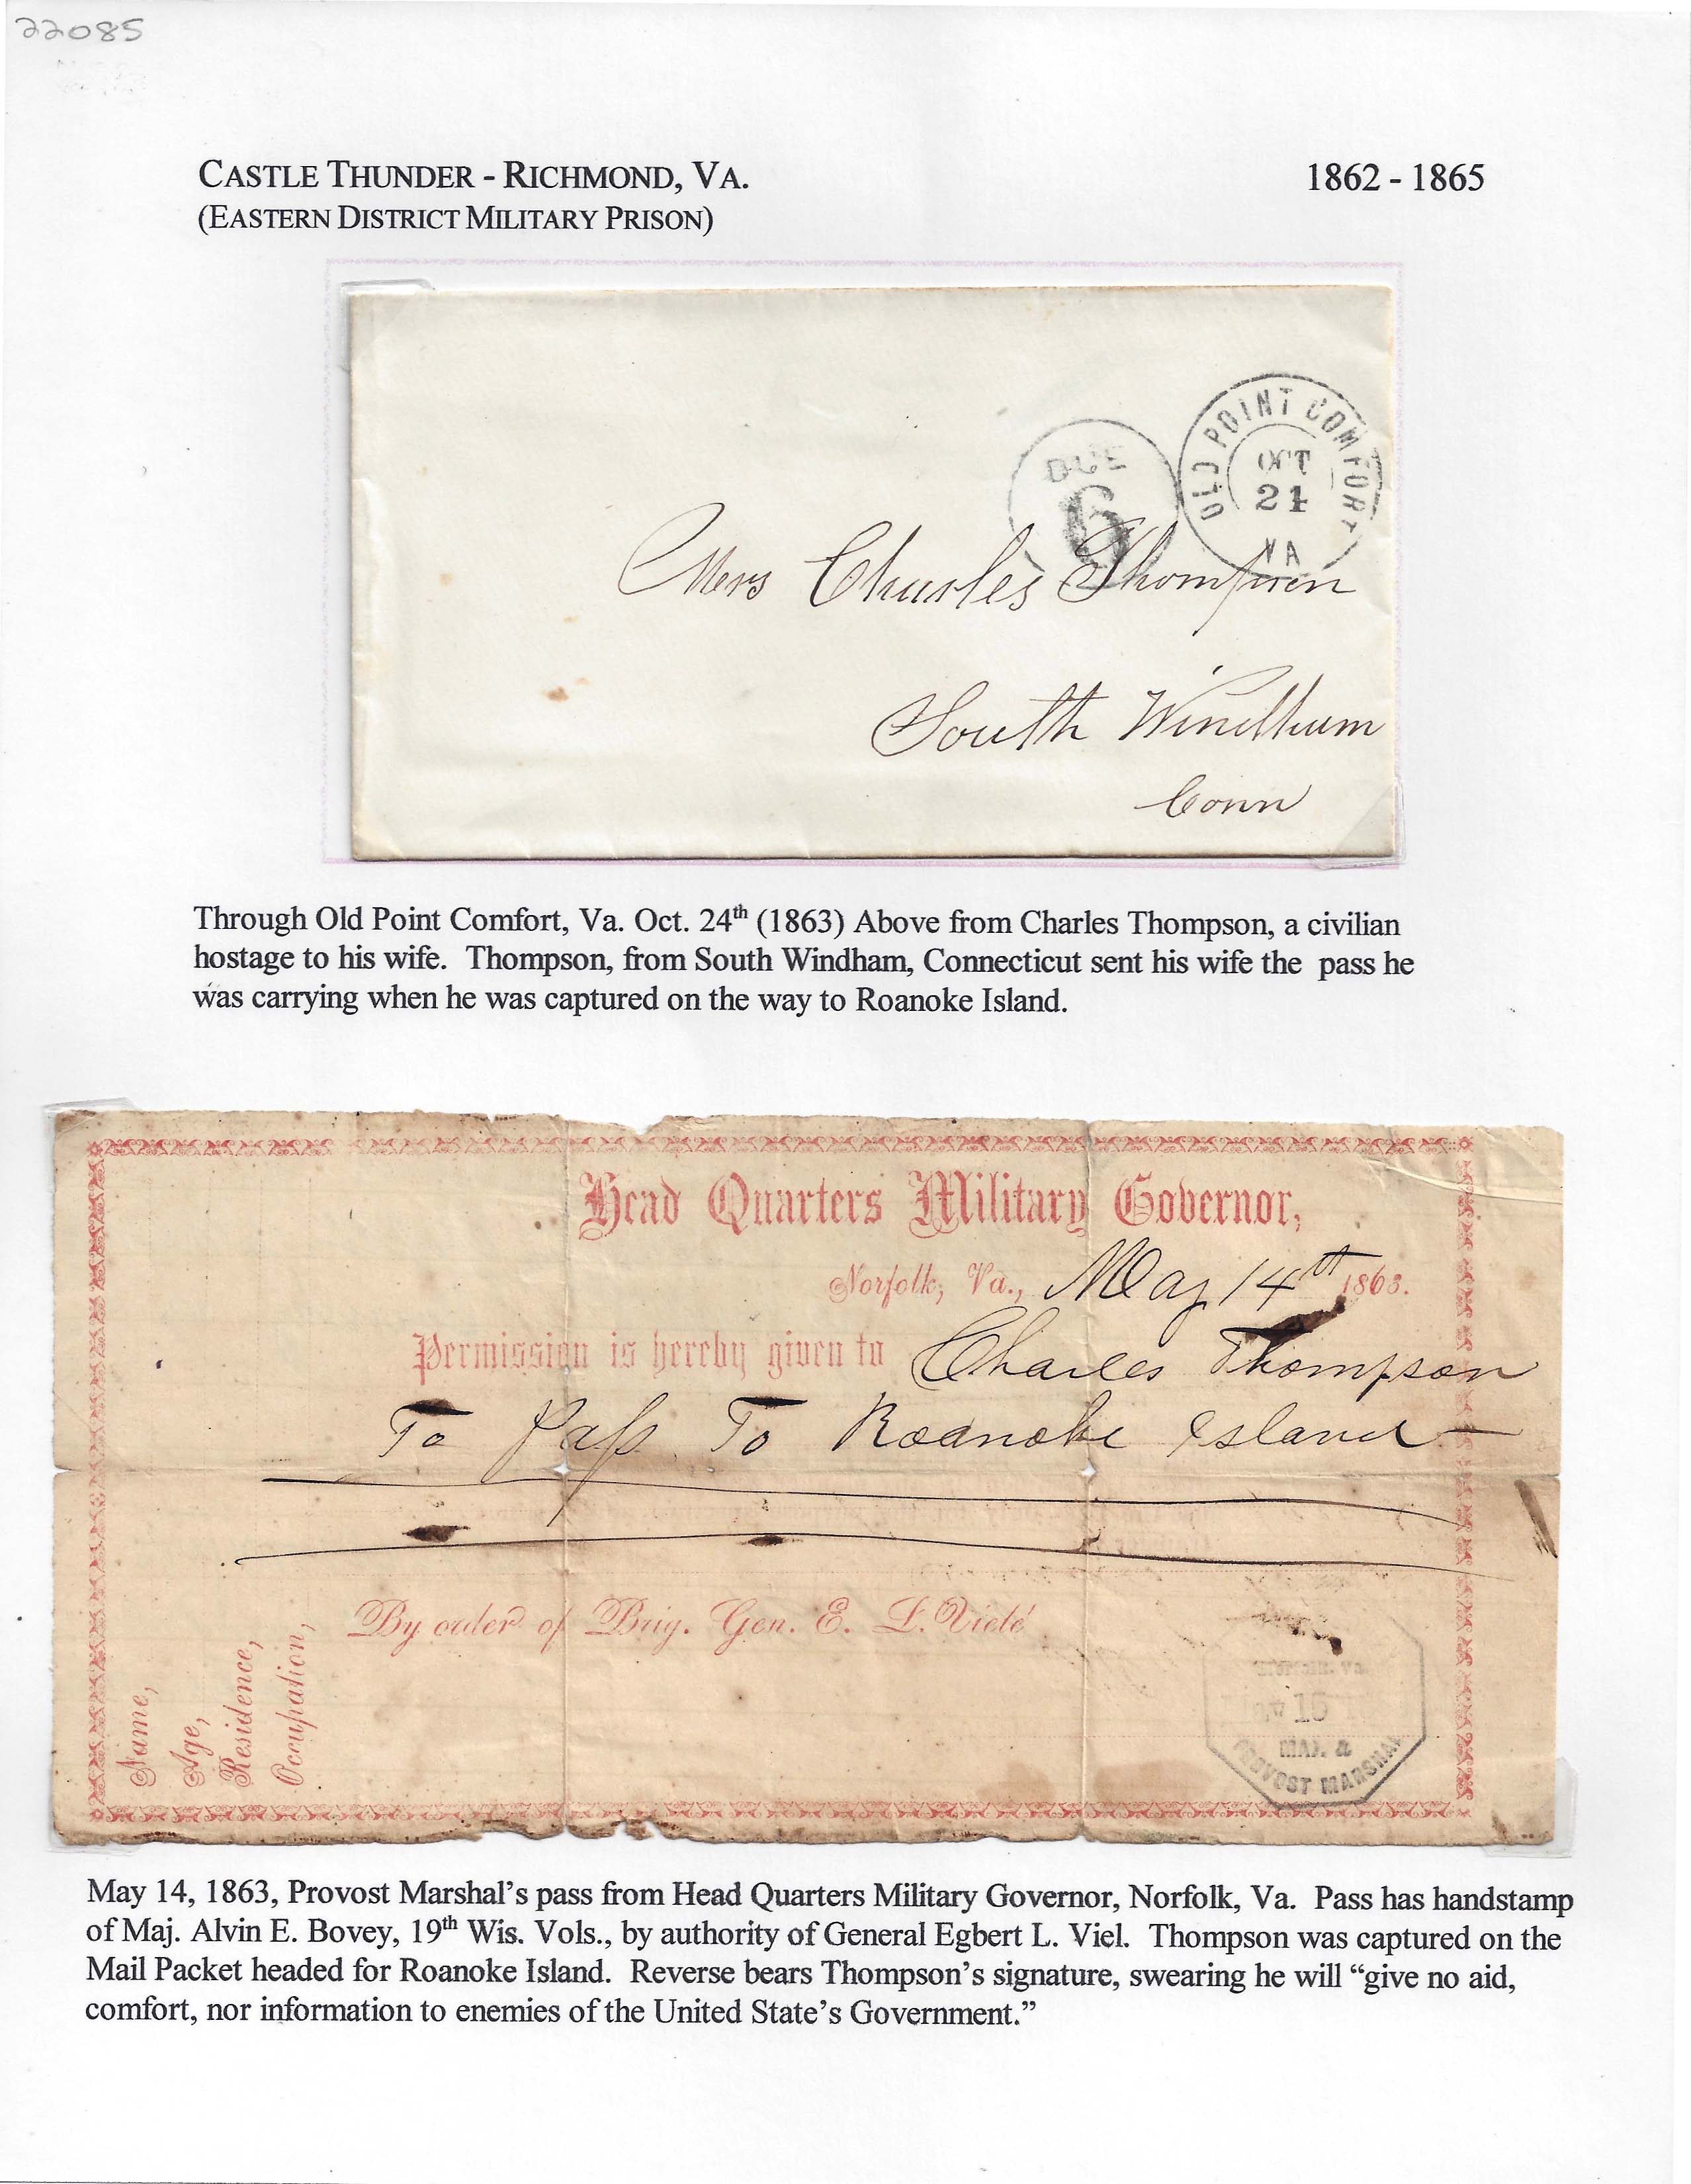 22085
CASTLE THUNDER - RICHMOND, VA.
1862 - 1865
(EASTERN DISTRICT MILITARY PRISON)
DUE
6
OLD POINT COMFORT
OCT
24
VA
Mrs Charles Thompson
South Windham
Conn
Through Old Point Comfort, Va. Oct. 24th (1863) Above from Charles Thompson, a civilian
hostage to his wife. Thompson, from South Windham, Connecticut sent his wife the pass he
was carrying when he was captured on the way to Roanoke Island.
Head Quarters Military Governor,
Norfolk, Va., May 14th 1863.
Permission is hereby given to Charles Thompson
To Pass To Roanoke Island
By order of Brig. Gen. E. L. Vielé
Name,
Age,
Residence,
Occupation,
15
MAJ. &
PROVOST MARSHAL
May 14, 1863, Provost Marshal's pass from Head Quarters Military Governor, Norfolk, Va. Pass has handstamp
of Maj. Alvin E. Bovey, 19th Wis. Vols., by authority of General Egbert L. Viel. Thompson was captured on the
Mail Packet headed for Roanoke Island. Reverse bears Thompson's signature, swearing he will “give no aid,
comfort, nor information to enemies of the United State's Government.”